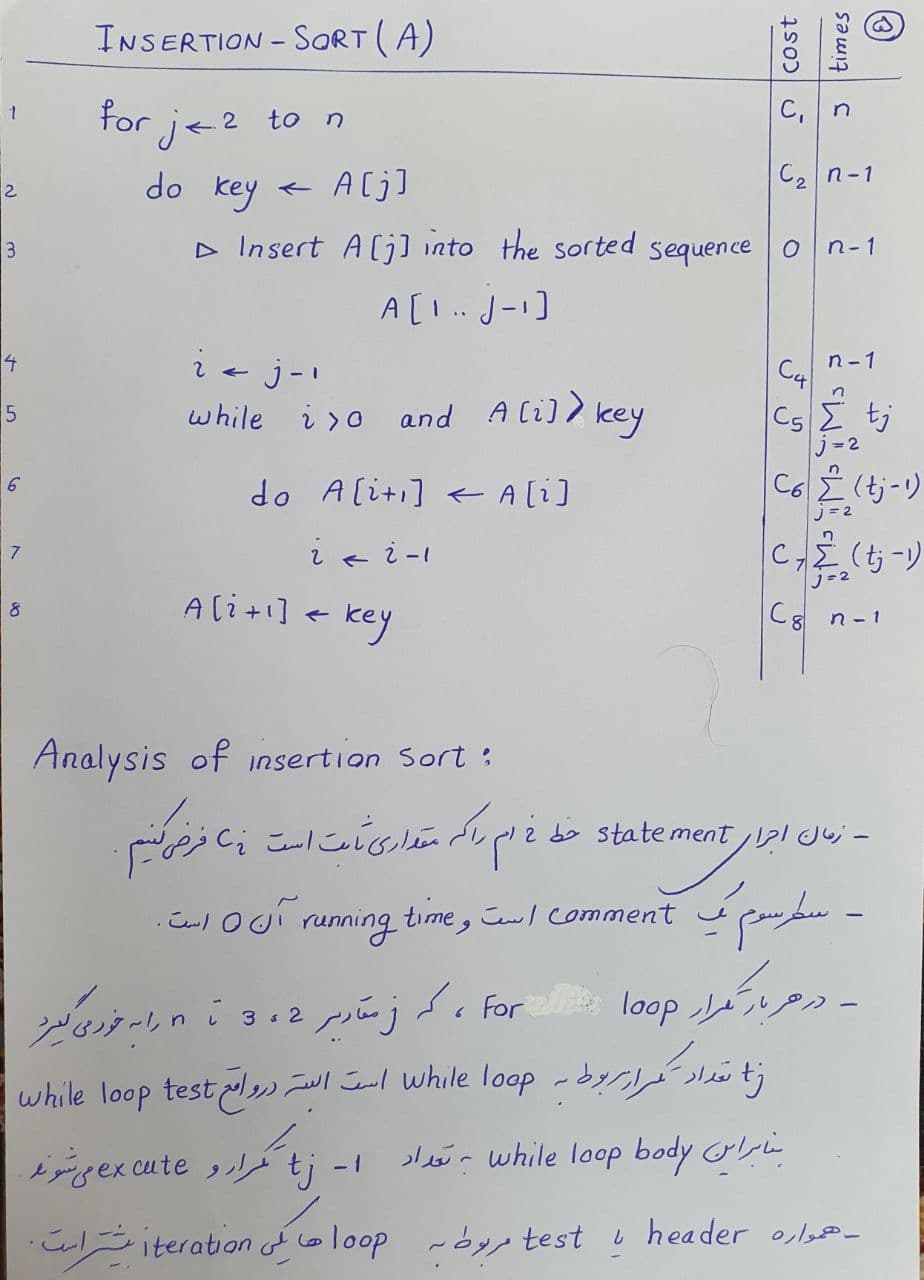 INSERTION-SORT(A) cost times ⑤
1 for j ← 2 to n C1 n
2 do key ← A[j] C2 n-1
3 ▷ Insert A[j] into the sorted sequence 0 n-1
A[1 .. j-1]
4 i ← j-1 C4 n-1
5 while i>0 and A[i] > key C5 Σ_{j=2}^{n} tj
6 do A[i+1] ← A[i] C6 Σ_{j=2}^{n} (tj-1)
7 i ← i-1 C7 Σ_{j=2}^{n} (tj-1)
8 A[i+1] ← key C8 n-1
Analysis of insertion sort :
- زمان اجرای statement خط i ام را که مقداری ثابت است Ci فرض کنیم .
- سطر سوم یک comment است و running time آن 0 است .
- در هر بار تکرار For loop ، که j مقادیر 2 ، 3 تا n را به خود می گیرد
tj تعداد تکرار مربوط به while loop است البته در واقع while loop test
بنابراین while loop body به تعداد tj -1 تکرار و excute می شوند
- همواره header یا test مربوط به loop ها یکی iteration بیشتر است .